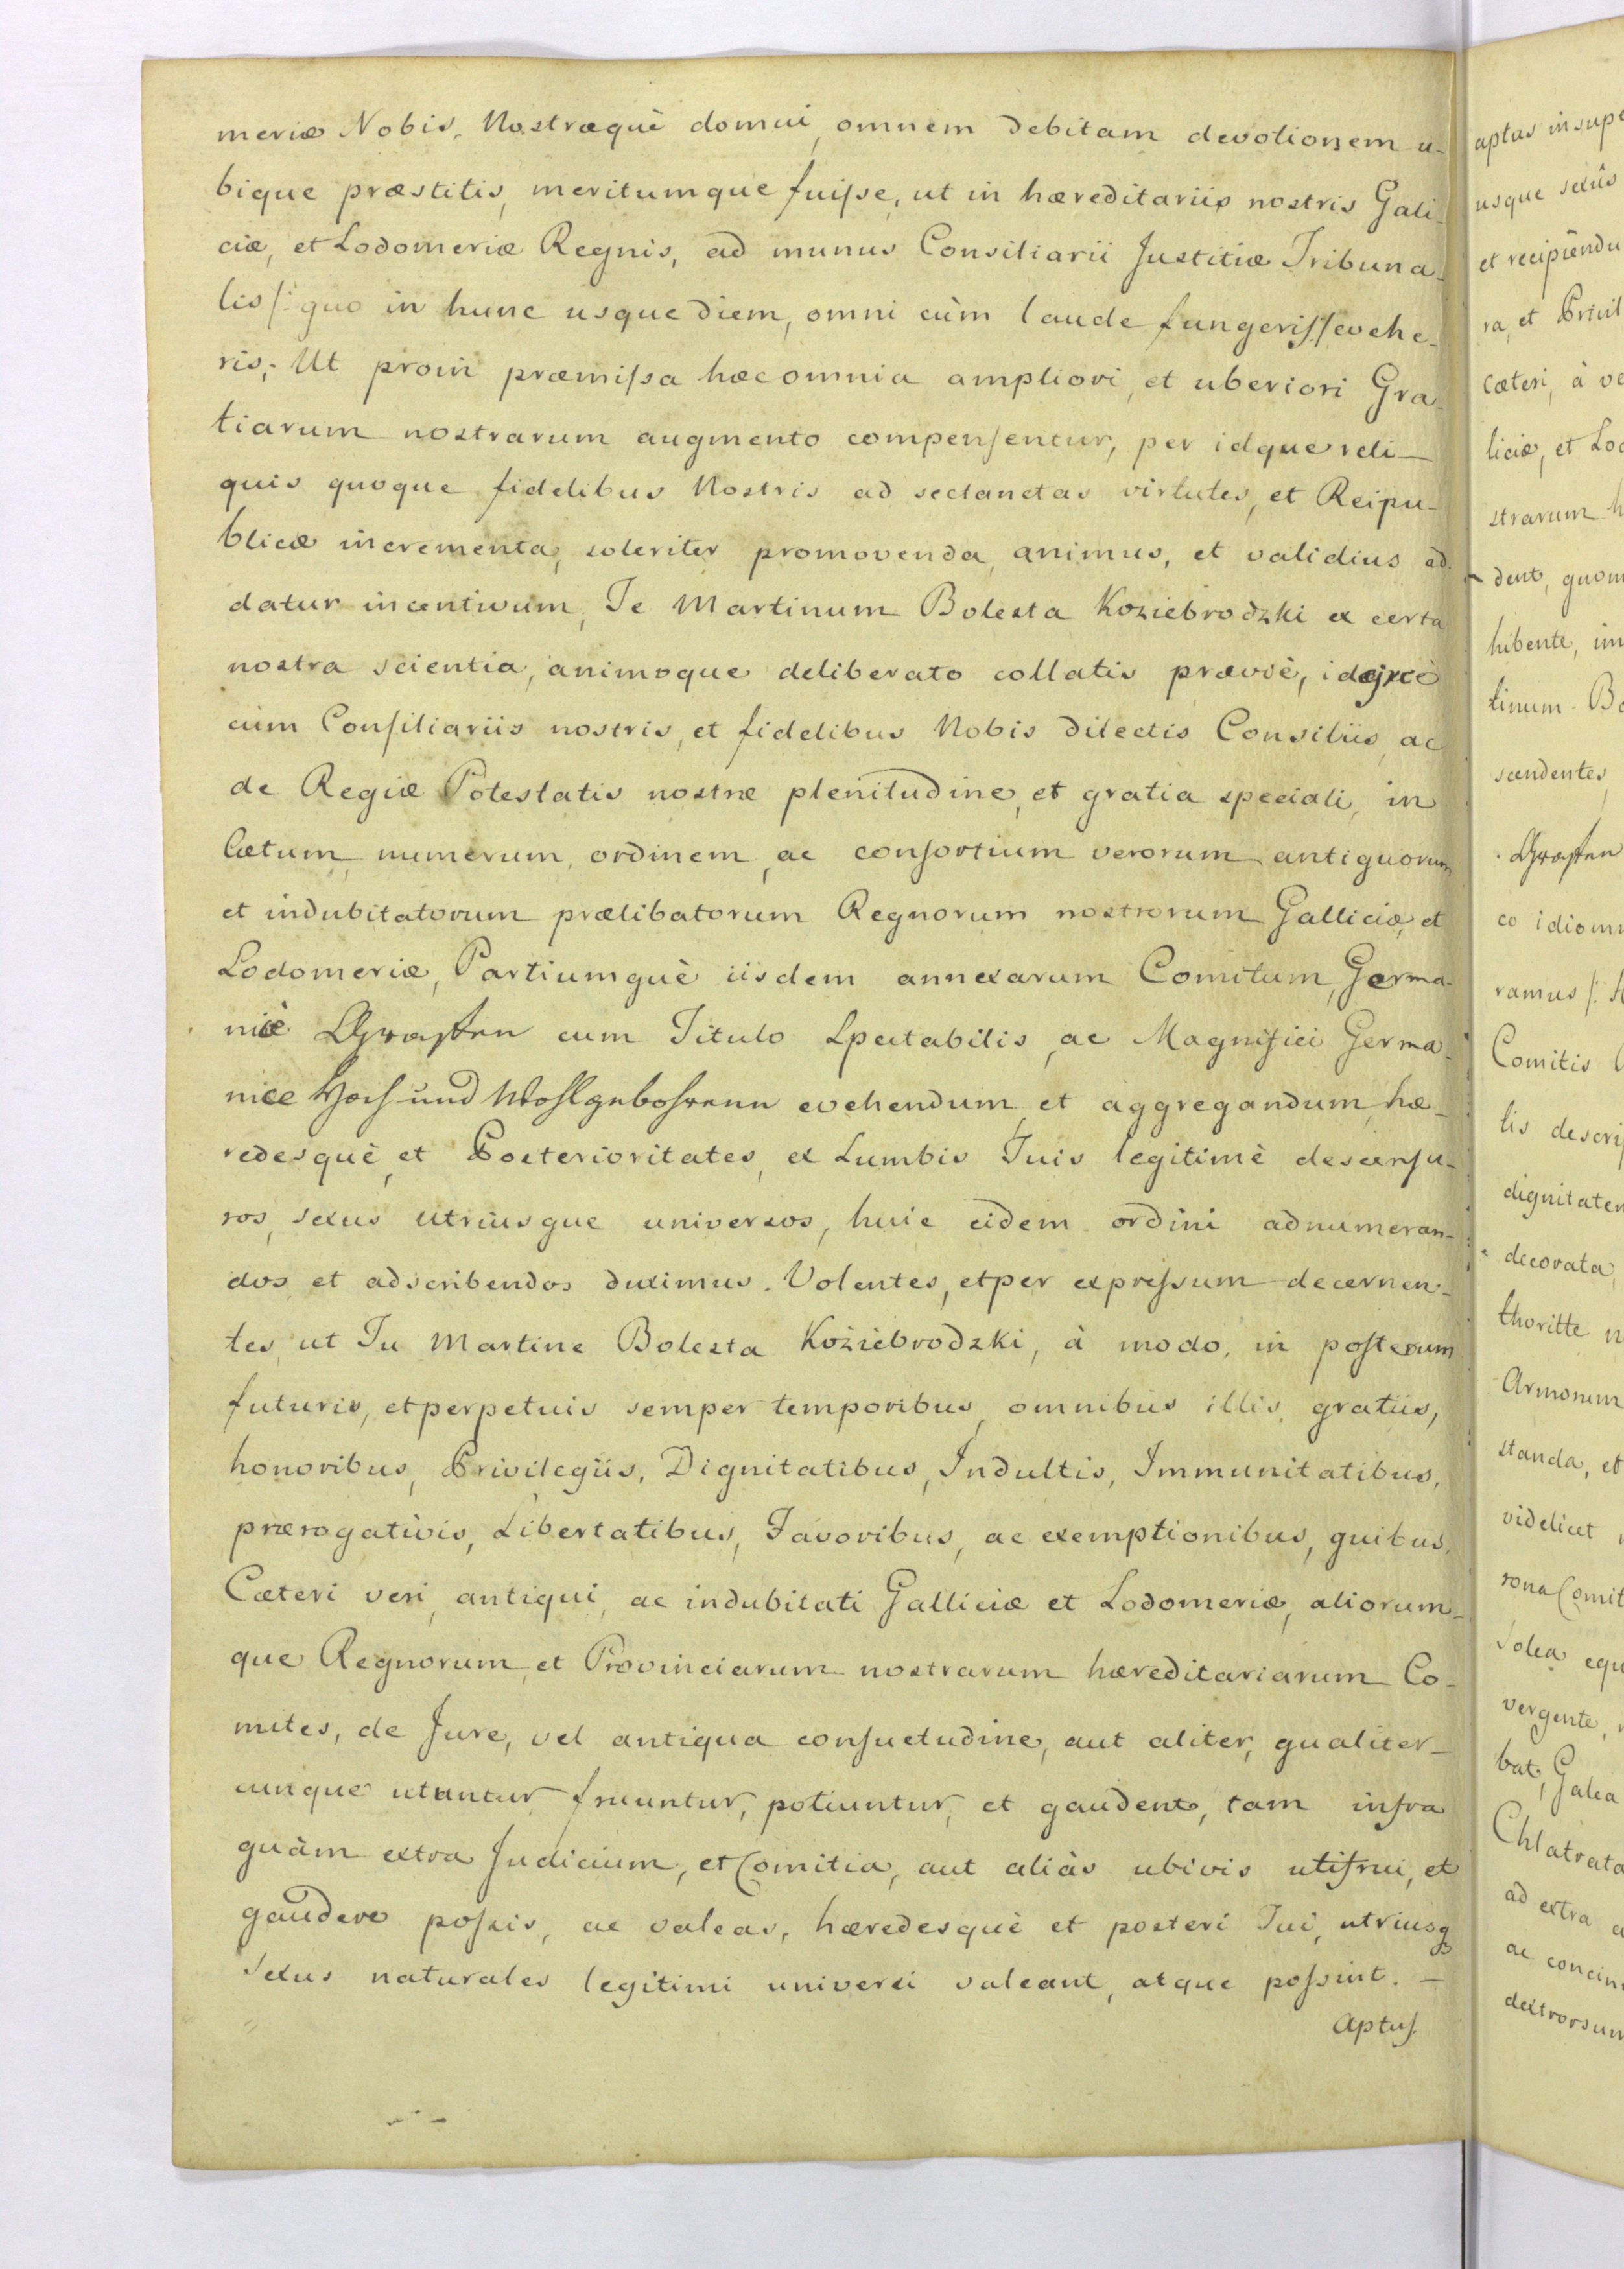 meriæ Nobis, Nostræquè domui, omnem debitam devotionem u-
bique præstitis, meritumque fuisse, ut in hæreditariis nostris Gali-
ciæ, et Lodomeriæ Regnis, ad munus Consiliarii Justitiæ Tribuna-
lis /: quo in hunc usque diem, omni cùm laude fungeris :/ evehe-
ris; Ut proin præmissa hæc omnia ampliori, et uberiori Gra-
tiarum nostrarum augmento compensentur, per idque reli-
quis quoque fidelibus Nostris ad sectandas virtutes, et Reipu-
blicæ incrementa, soleriter promovenda, animus, et validius ad-
datur incentivum, Te Martinum Bolesta Koziebrodzki ex certa
nostra scientia, animoque deliberato collatis præviè, idcircè
cum Consiliariis nostris, et fidelibus Nobis dilectis Consiliis, ac
de Regiæ Potestatis nostræ plenitudine, et gratia speciali, in
Cætum, numerum, ordinem, ac consortium verorum antiquorum
et indubitatorum prælibatorum Regnorum nostrorum Galliciæ, et
Lodomeriæ, Partiumquè iisdem annexarum Comitum, Germa-
nicè Graffen cum Titulo Spectabilis, ac Magnifici Germa-
nice Hoch und Wohlgebohrnen evehendum, et aggregandum, hæ-
redesquè, et Posterioritates, ex Lumbis Tuis legitimè descensu-
ros, sexus utriusque universos, huic eidem ordini adnumeran-
dos, et adscribendos duximus. Volentes, et per expressum decernen-
tes, ut Tu Martine Bolesta Koziebrodzki, à modo, in posterum
futuris, et perpetuis semper temporibus, omnibus illis, gratiis,
honoribus, Privilegiis, Dignitatibus, Indultis, Immunitatibus,
prærogativis, Libertatibus, Favoribus, ac exemptionibus, quibus,
Cæteri veri, antiqui, ac indubitati Galliciæ et Lodomeriæ, aliorum-
que Regnorum, et Provinciarum nostrarum hæreditariarum Co-
mites, de Jure, vel antiqua consuetudine, aut aliter, qualiter-
cunque utuntur, fruuntur, potiuntur, et gaudent, tam infra
quàm extra Judicium, et Comitia, aut aliàs ubivis uti frui, et
gaudere possis, ac valeas, hæredesquè et posteri Tui, utriusq
Sexus naturales legitimi universi valeant, atque possint. —
Aptus
aptus insupe
usque sexûs
et recipiendu
ra, et Privil
Cæteri, à ve
liciæ, et Lod
strarum h
dent, quom
hibente, im
tinum Bo
scendentes
Graffen
co idiom
ramus /: H
Comitis
lis descri
dignitatem
decorata,
thoritte n
Armorum
standa, et
videlicet
rona Comit
Solea equ
vergente,
bat, Galea
Chlatrata
ad extra
ac concin
dextrorsum